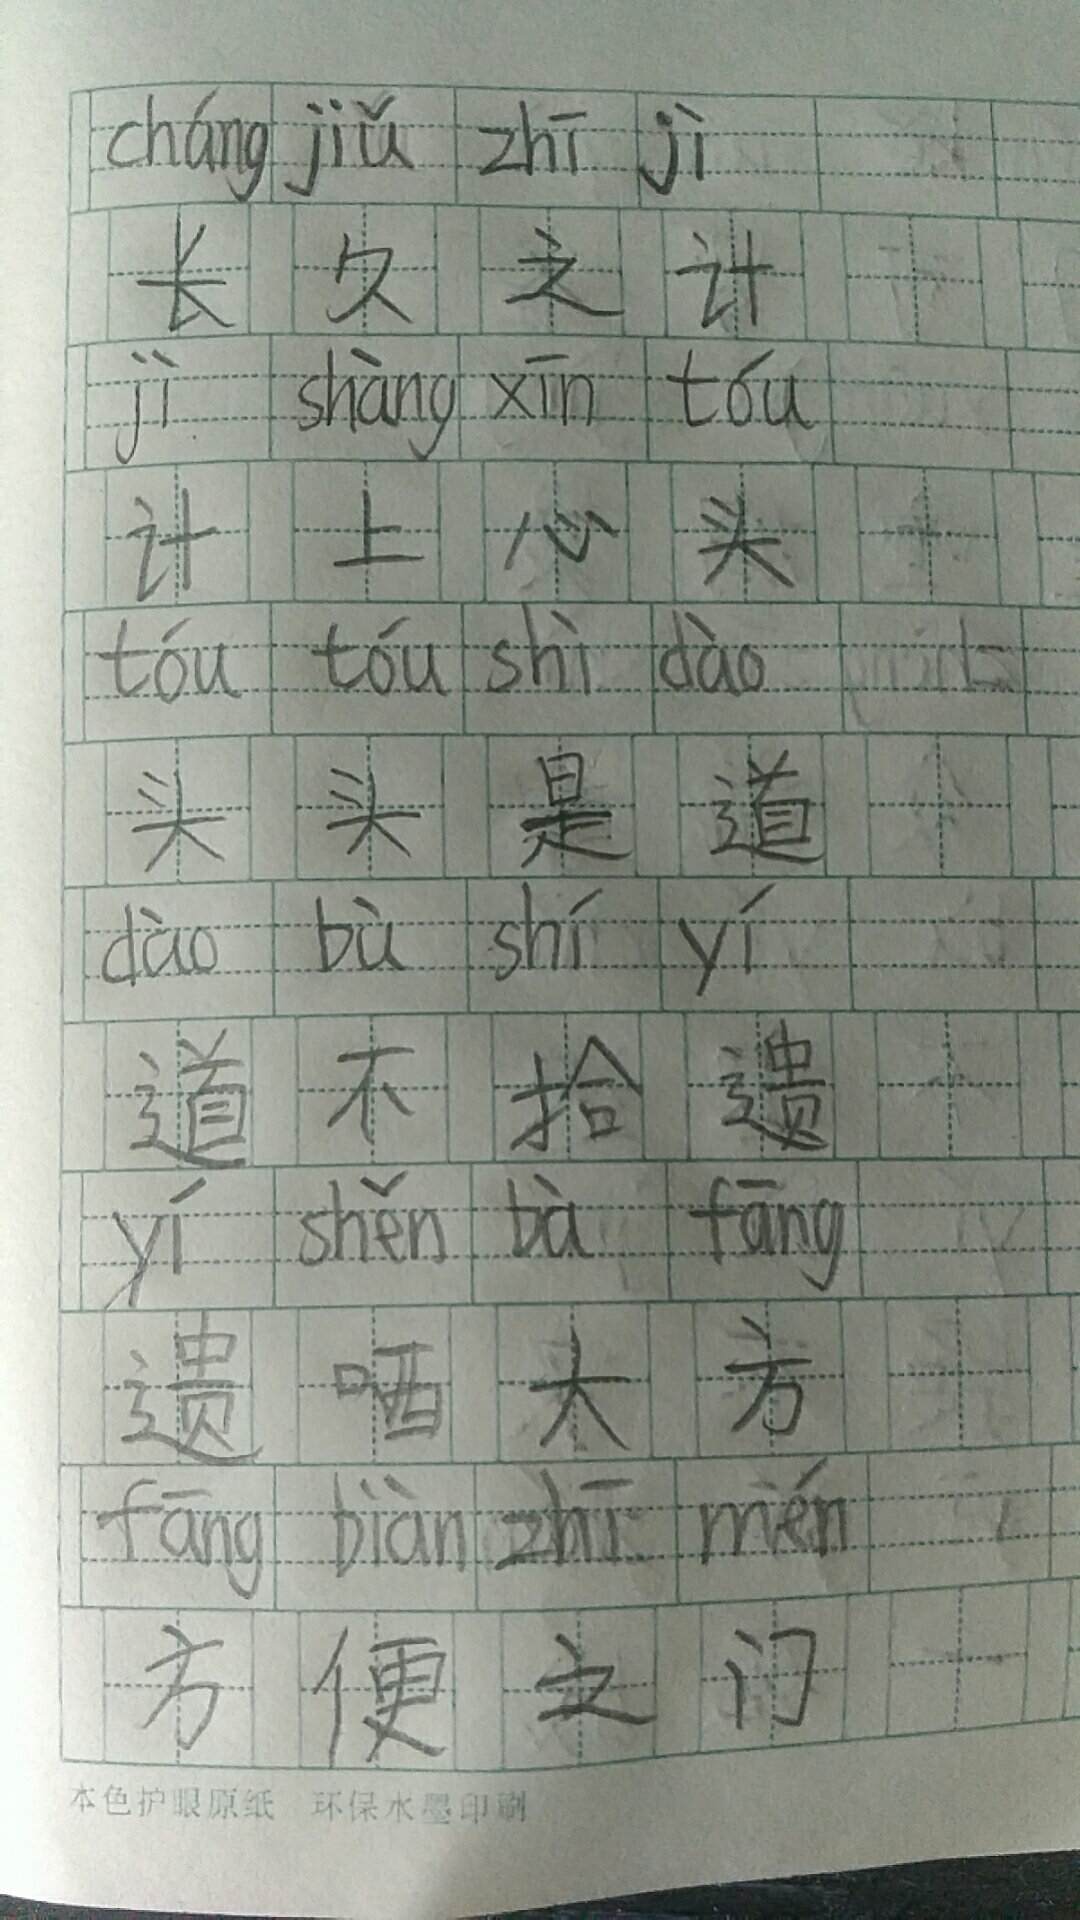 cháng jiǔ zhī jì
长久之计
jì shàng xīn tóu
计上心头
tóu tóu shì dào
头头是道
dào bù shí yí
道不拾遗
yí shěn bà fāng
遗哂大方
fāng biàn zhī mién
方便之门
本色护眼原纸 环保水墨印刷